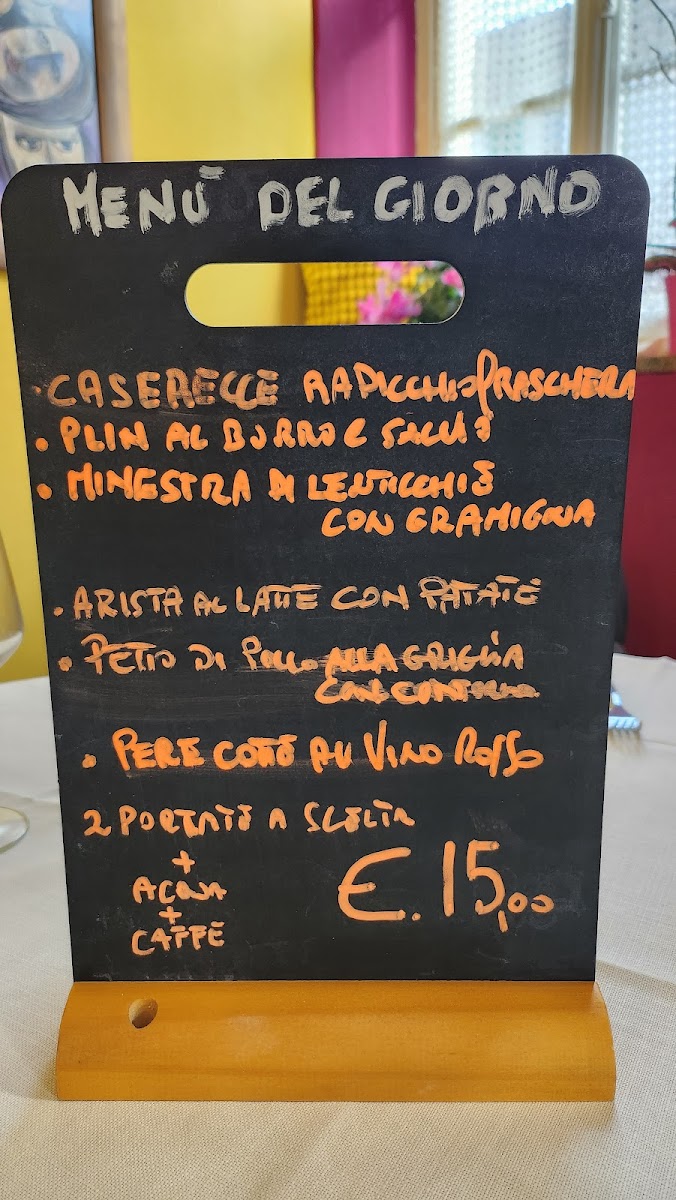 MENÙ DEL GIORNO
• CASERECCE RADICCHIO RASCHERA
• PLIN AL BURRO E SALVIA
• MINESTRA DI LENTICCHIE
CON GRAMIGNA
• ARISTA AL LATTE CON PATATE
• PETTO DI POLLO ALLA GRIGLIA
CON CONTORNO
• PERE COTTE AL VINO ROSSO
2 PORTATE A SCELTA
+
ACQUA
+
CAFFÈ
€. 15,00